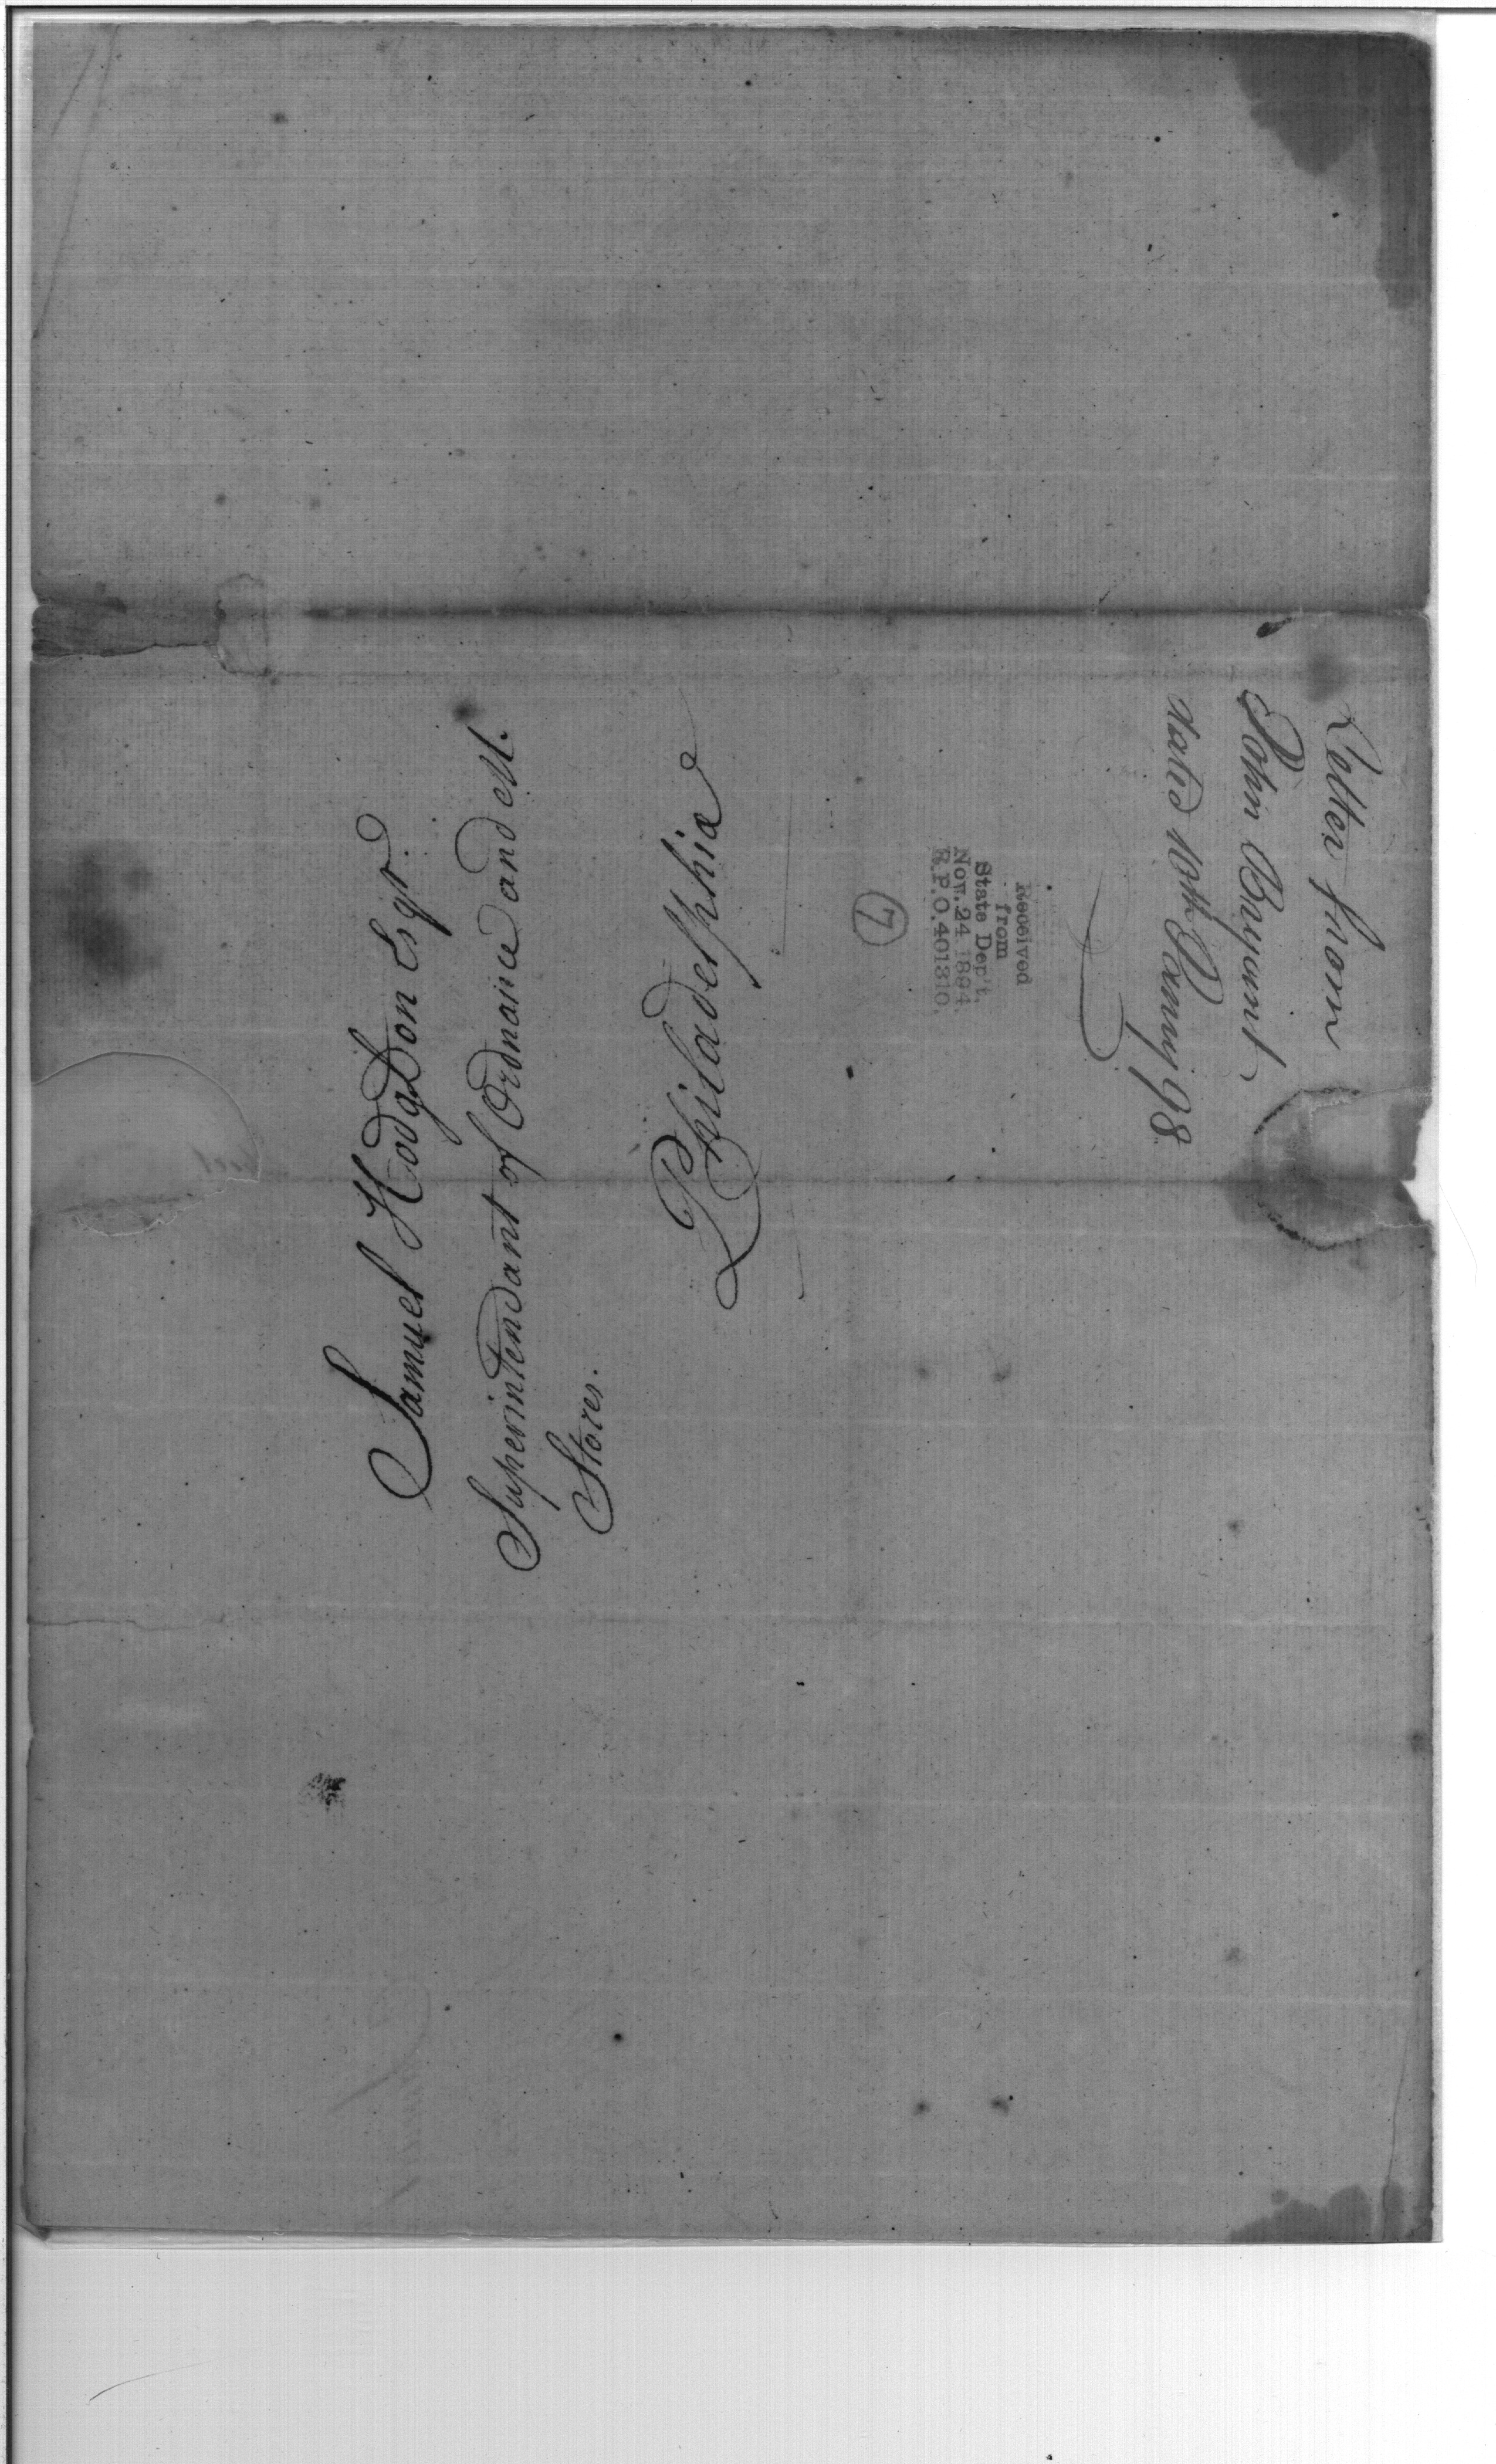 Samuel Hodgdon Esqr.
Superintendant of Ordnance and M.
Stores.
Philadelphia
Letter from
John Bryant
dated 10th Jany 98
Received
from
State Dep't.
Nov. 24 1894
R.P.O. 401310.
7